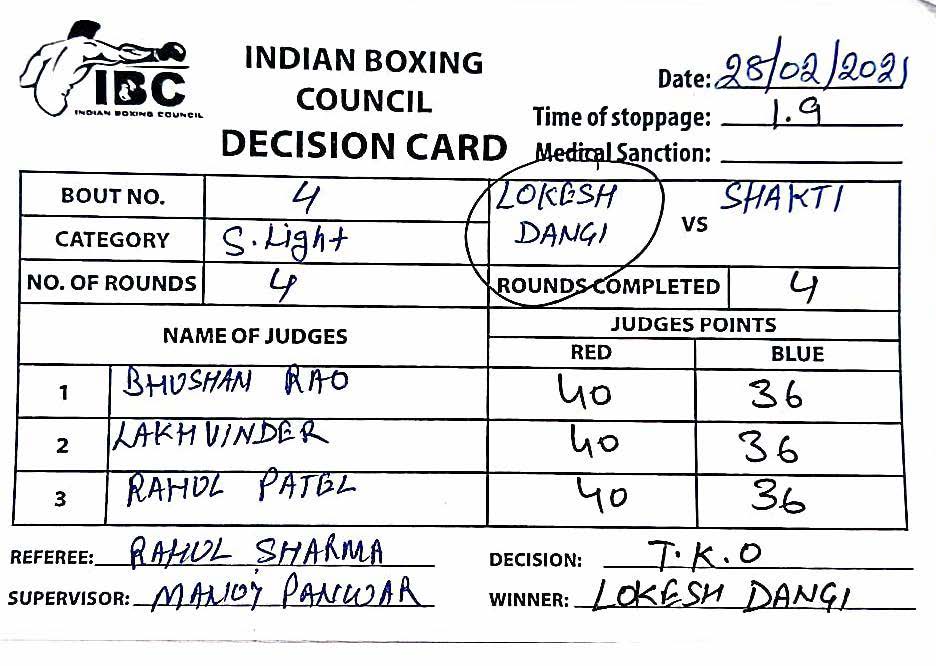 IBC
INDIAN BOXING COUNCIL
INDIAN BOXING
COUNCIL
DECISION CARD
Date: 28/02/2021
Time of stoppage: 1.9
Medical Sanction:
BOUT NO. 4
CATEGORY S.Light
NO. OF ROUNDS 4
LOKESH
DANGI
VS
SHAKTI
ROUNDS COMPLETED 4
NAME OF JUDGES
JUDGES POINTS
RED BLUE
1 BHUSHAN RAO 40 36
2 LAKHVINDER 40 36
3 RAHUL PATEL 40 36
REFEREE: RAHUL SHARMA
DECISION: T.K.O
SUPERVISOR: MANOJ PANWAR
WINNER: LOKESH DANGI